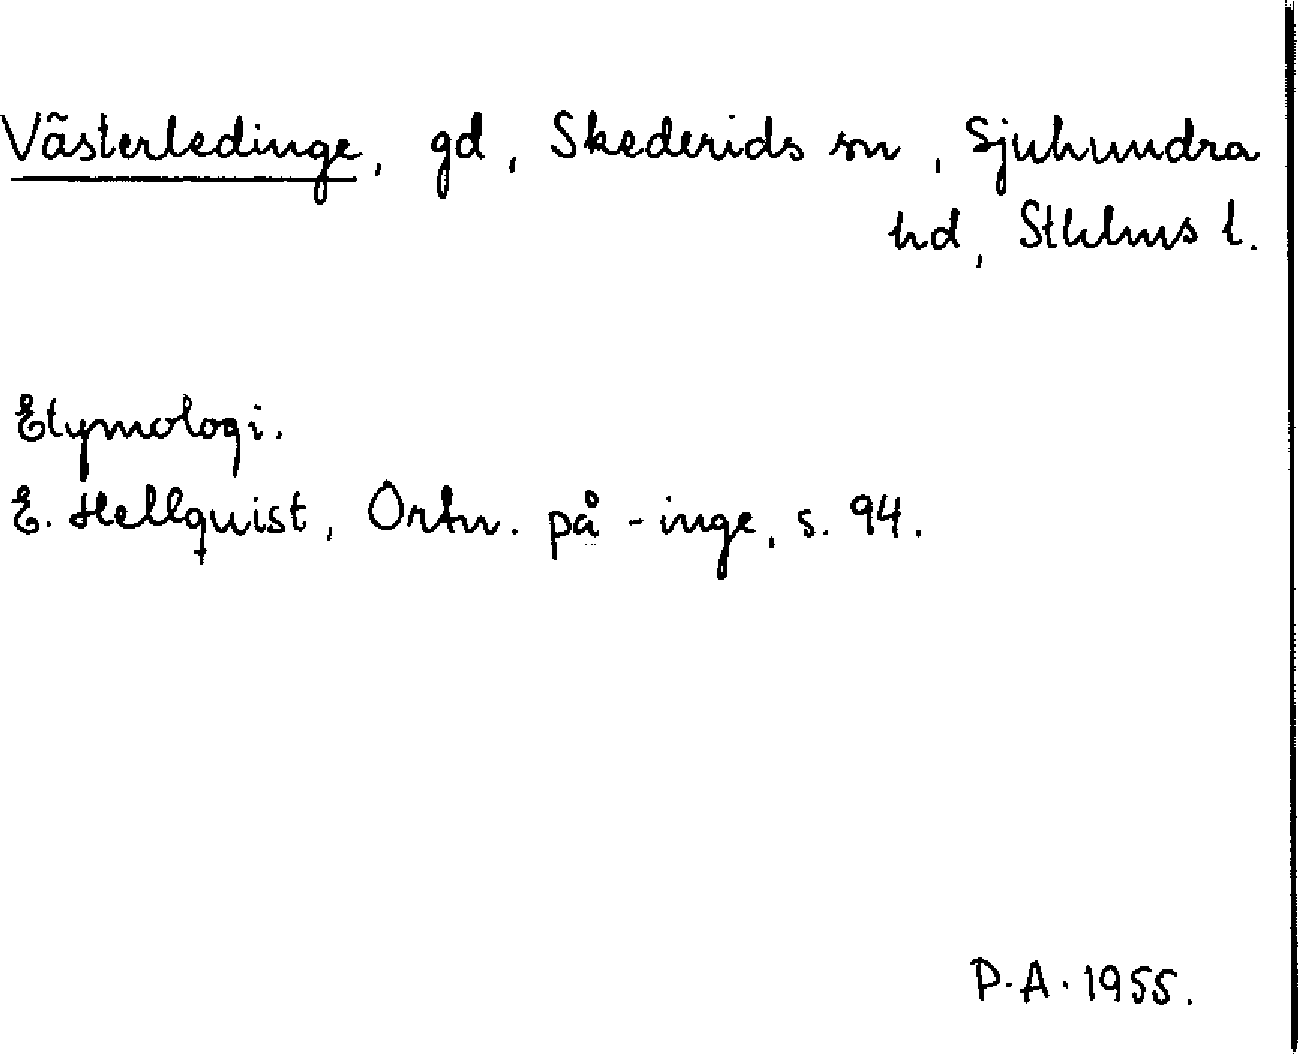 Västerledinge, gd, Skederids sn, Sjuhundra
hd, Sthlms l.
Etymologi.
E. Hellquist, Ortn. på -inge, s. 94.
P.A. 1955.